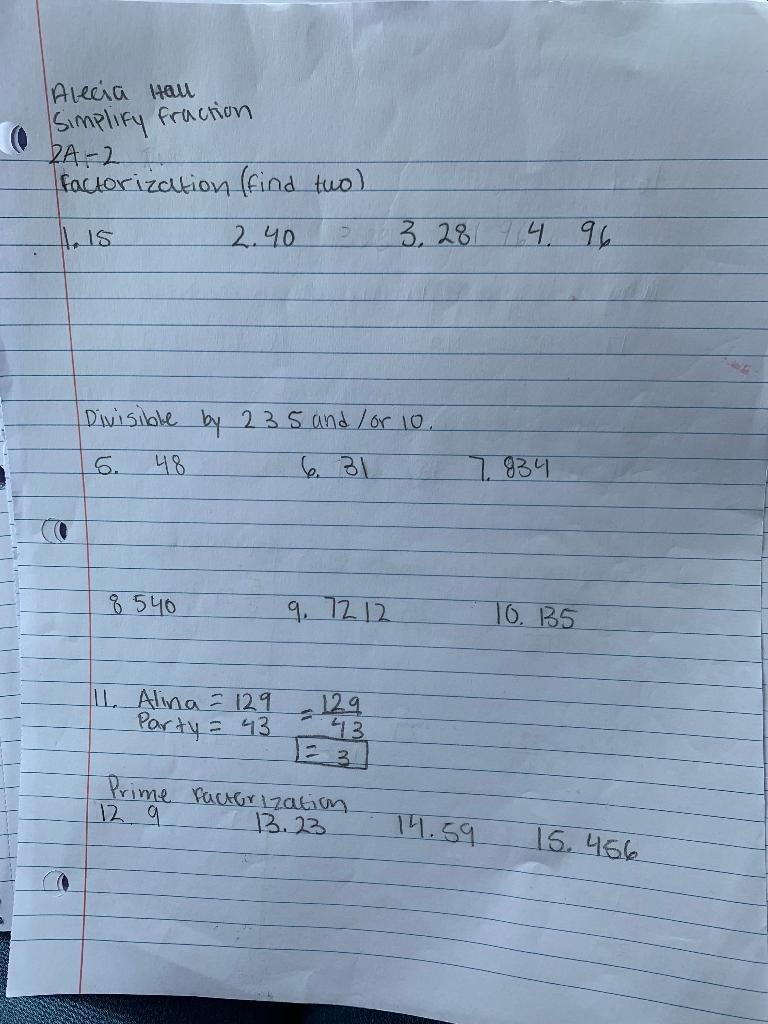 Alecia Hall
Simplify Fraction
2A-2
Factorization (find two)
1. 15 2. 40 3. 28 4. 96
Divisible by 2 3 5 and/or 10.
5. 48 6. 31 7. 834
8 540 9. 7212 10. 135
11. Alina = 129 = 129
Party = 43 43
= 3
Prime Factorization
12 9 13. 23 14. 59 15. 456